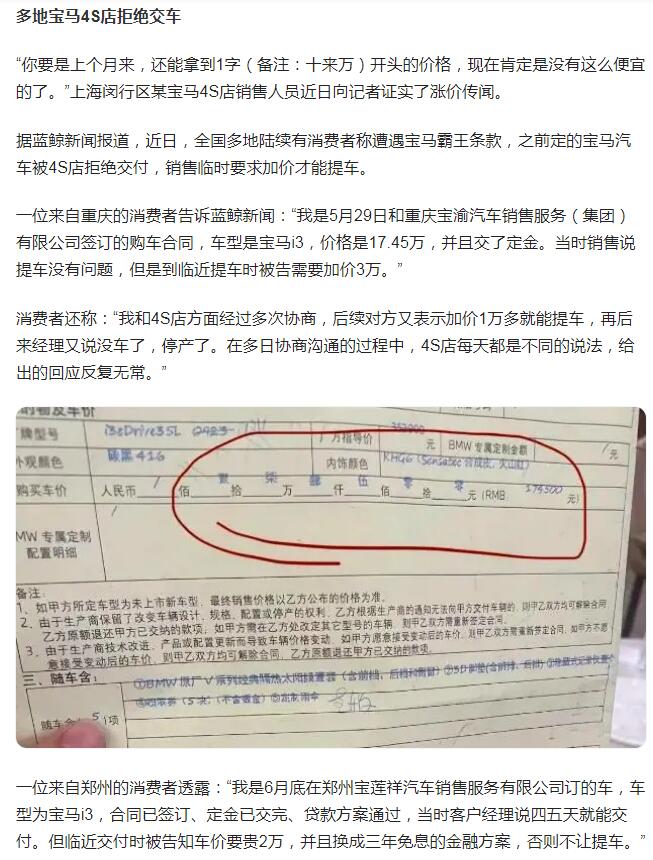 多地宝马4S店拒绝交车
“你要是上个月来，还能拿到1字（备注：十来万）开头的价格，现在肯定是没有这么便宜
的了。”上海闵行区某宝马4S店销售人员近日向记者证实了涨价传闻。
据蓝鲸新闻报道，近日，全国多地陆续有消费者称遭遇宝马霸王条款，之前定的宝马汽
车被4S店拒绝交付，销售临时要求加价才能提车。
一位来自重庆的消费者告诉蓝鲸新闻：“我是5月29日和重庆宝渝汽车销售服务（集团）
有限公司签订的购车合同，车型是宝马i3，价格是17.45万，并且交了定金。当时销售说
提车没有问题，但是到临近提车时被告需要加价3万。”
消费者还称：“我和4S店方面经过多次协商，后续对方又表示加价1万多就能提车，再后
来经理又说没车了，停产了。在多日协商沟通的过程中，4S店每天都是不同的说法，给
出的回应反复无常。”
牌型号 i3eDrive35L 厂方指导价 353900 元 BMW 专属定制金额 / 元
外观颜色 碳黑416 内饰颜色 KHG6 (Sensatec 合成皮，火山红)
购买车价 人民币 / 佰 壹 拾 柒 万 肆 仟 伍 佰 零 拾 零 元 (RMB 174500 元)
MW 专属定制
配置明细
/
备注：
1、如甲方所定车型为未上市新车型，最终销售价格以乙方公布的价格为准。
2、由于生产商保留了改变车辆设计、规格、配置或停产的权利，乙方根据生产商的通知无法向甲方交付车辆的，则甲乙双方均可解除合同
乙方原额退还甲方已交纳的款项；如甲方需在乙方处改定其它型号的车辆，则甲乙双方需重新签定合同。
3、由于生产商技术改进、产品或配置更新而导致车辆价格变动，如甲方愿意接受变动后的车价，则甲乙双方需重新签定合同，如甲方不愿
意接受变动后的车价，则甲乙双方可解除合同，乙方原额退还甲方已交纳的款项。
三、随车含：
①BMW 原厂V系列经典隔热太阳膜
随车含 5 项
一位来自郑州的消费者透露：“我是6月底在郑州宝莲祥汽车销售服务有限公司订的车，车
型为宝马i3，合同已签订、定金已交完、贷款方案通过，当时客户经理说四五天就能交
付。但临近交付时被告知车价要贵2万，并且换成三年免息的金融方案，否则不让提车。”